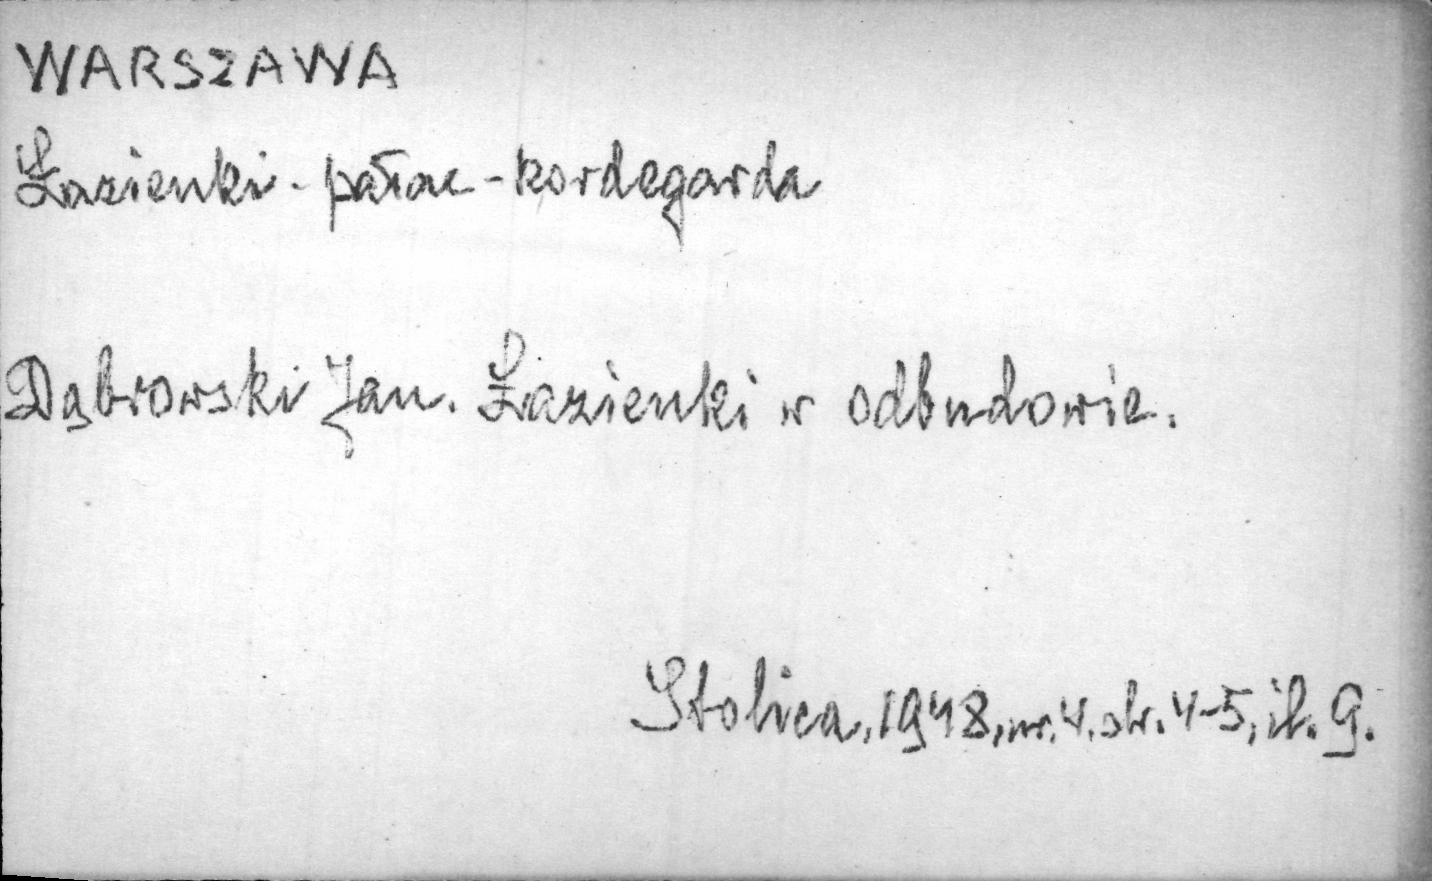 WARSZAWA
Łazienki - pałac - kordegarda
Dąbrowski Jan. Łazienki w odbudowie.
Stolica, 1948, nr. 4. str. 4-5, il. 9.